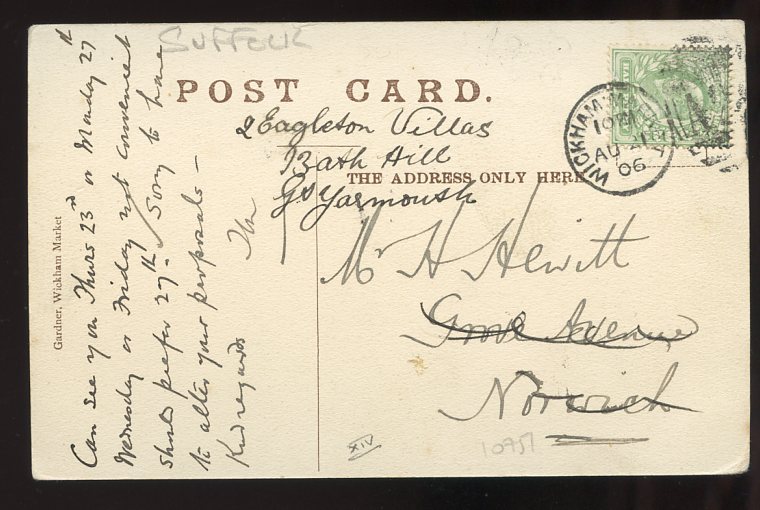 SUFFOLK
POST CARD.
2 Eagleton Villas
Bath Hill
Gt Yarmouth
THE ADDRESS ONLY HERE
Mr H Hewitt
Grove Avenue
Norwich
WICKHAM M
AU 21
06
Can see you Thurs 23rd or Monday 27th
Wednesday or Friday not convenient
Should prefer 27th - Sorry to have
to alter your proposals -
Kind regards
Gardner, Wickham Market
XIV